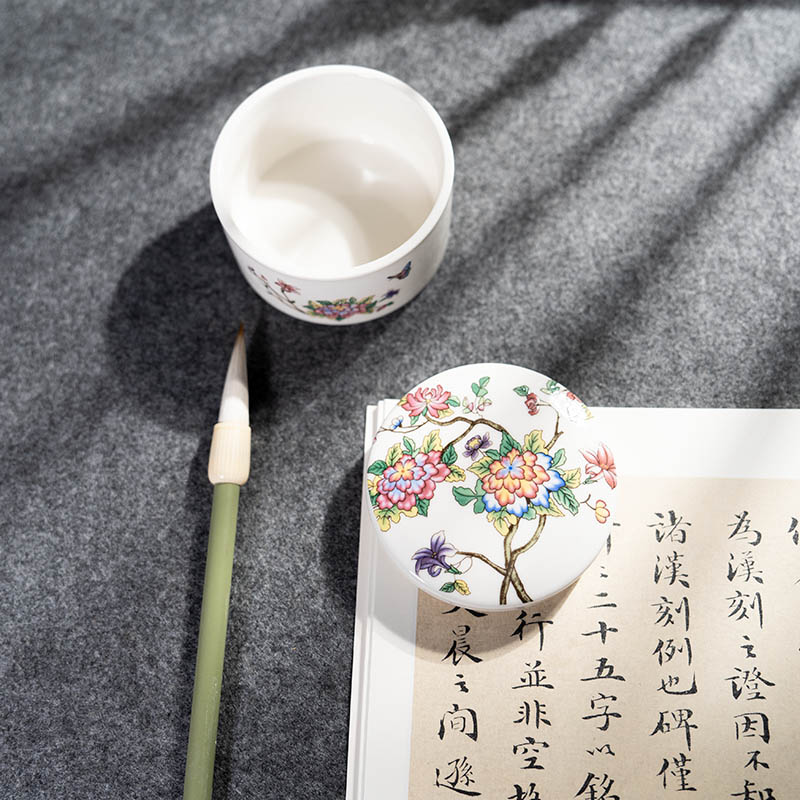 為漢刻之證因不知
諸漢刻例也碑僅
二十五字以銘
行並非空格
晨之間遜